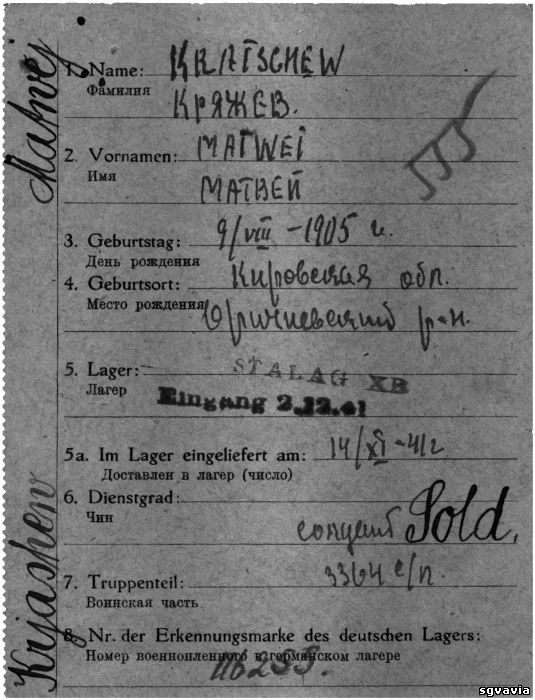 Krjashew Matwej
1. Name: KRATSCHEW
Фамилия
КРЯЖЕВ.
2. Vornamen: MATWEI
Имя
МАТВЕЙ
3. Geburtstag: 9/VIII – 1905 г.
День рождения
4. Geburtsort: Кировская обл.
Место рождения
Оричиевский р-н.
5. Lager: STALAG XB
Лагер
Eingang 2.12.41
5a. Im Lager eingeliefert am: 14/XI – 41 г
Доставлен в лагер (число)
6. Dienstgrad:
Чин
солдат Sold.
7. Truppenteil: 3364 с/п.
Воинская часть
8. Nr. der Erkennungsmarke des deutschen Lagers:
Номер военнопленного в германском лагере
sgvavia